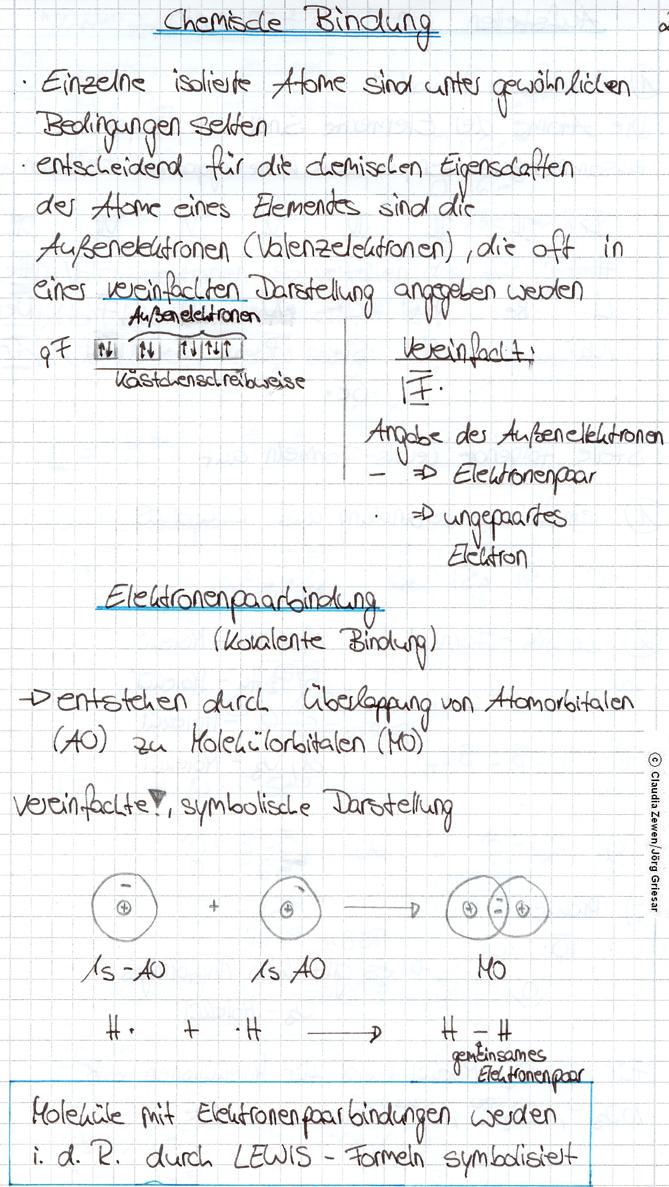 Chemische Bindung
· Einzelne isolierte Atome sind unter gewöhnlichen
Bedingungen selten
· entscheidend für die chemischen Eigenschaften
der Atome eines Elementes sind die
Außenelektronen (Valenzelektronen), die oft in
einer vereinfachten Darstellung angegeben werden
Außenelektronen
9F ↑↓ ↑↓ ↑↓ ↑↓ ↑
Kästchenschreibweise
Vereinfacht:
|F·
Angabe der Außenelektronen
– ⇒ Elektronenpaar
· ⇒ ungepaartes
Elektron
Elektronenpaarbindung
(Kovalente Bindung)
→ entstehen durch Überlappung von Atomorbitalen
(AO) zu Molekülorbitalen (MO)
vereinfachte, symbolische Darstellung
1s-AO 1s AO MO
H· + ·H → H – H
gemeinsames
Elektronenpaar
Moleküle mit Elektronenpaarbindungen werden
i. d. R. durch LEWIS - Formeln symbolisiert
© Claudia Zewen/Jörg Griesar